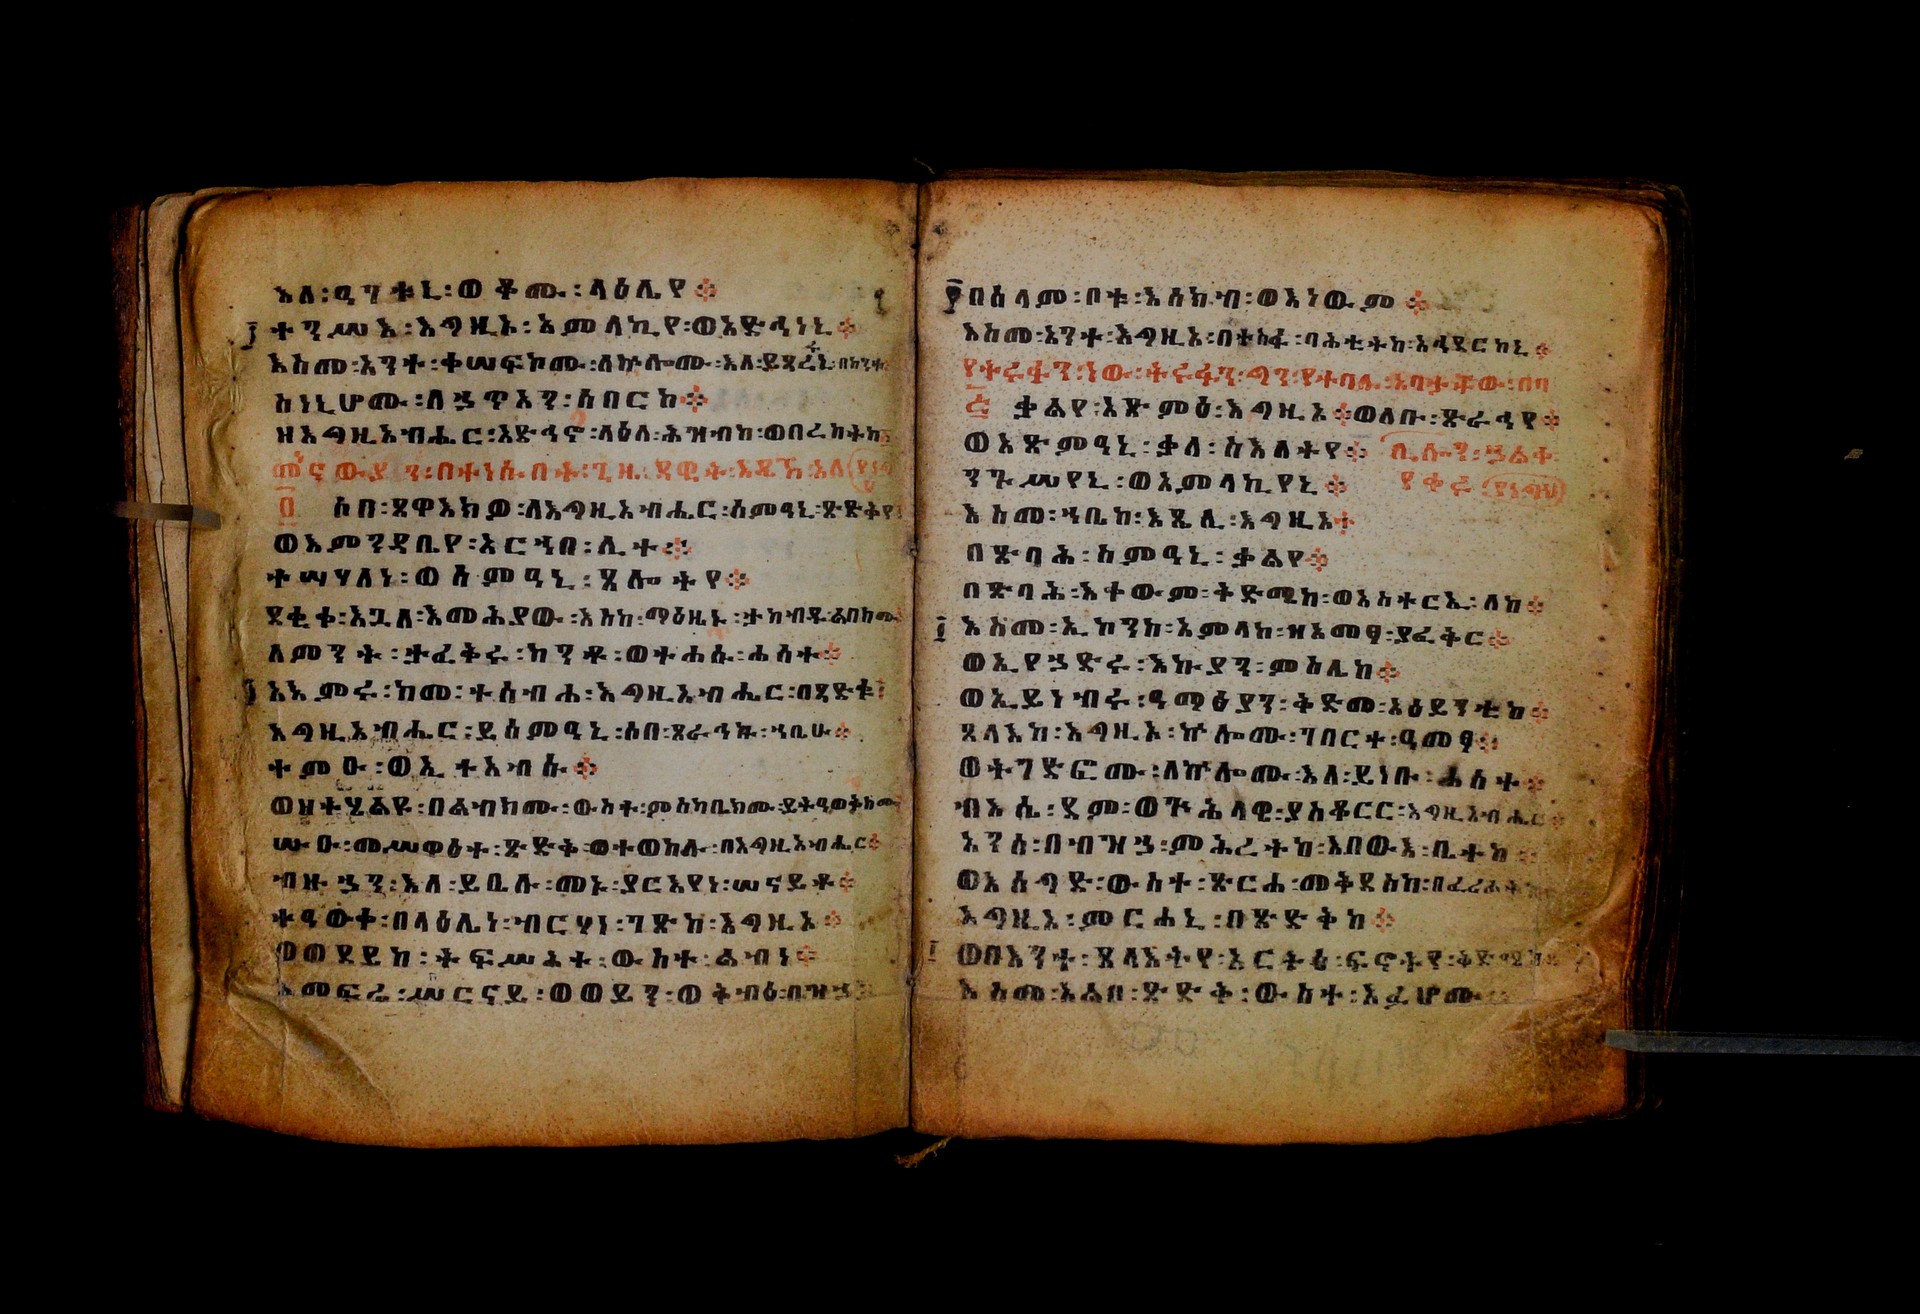 እለ፡ዔገቱኒ፡ወቆሙ፡ላዕሌየ፨
ተንሥእ፡እግዚኦ፡አምላኪየ፡ወአድኅነኒ፨
እስመ፡አንተ፡ቀሠፍኮሙ፡ለኵሎሙ፡እለ፡ይጻረሩኒ፡በከንቱ
ስነኒሆሙ፡ለኃጥኣን፡ሰበርከ፨
ዘእግዚአብሔር፡አድኅኖ፡ላዕለ፡ሕዝብከ፡ወበረከትከ፨
በተነሱበት፡ጊዜ፡
፬ ሶበ፡ጸዋእክዎ፡ለእግዚአብሔር፡ሰምዓኒ፡ጽድቅየ፡
ወእምንዳቤየ፡አርኀበ፡ሊተ፨
ተሣሃለኒ፡ወስምዓኒ፡ጸሎትየ፨
ደቂቀ፡እጓለ፡እመሕያው፡እስከ፡ማዕዜኑ፡ታከብዱ፡ልበክሙ
ለምንት፡ታፈቅሩ፡ከንቶ፡ወተሐሱ፡ሐሰተ፨
አእምሩ፡ከመ፡ተሰብሐ፡እግዚአብሔር፡በጻድቁ፨
እግዚአብሔር፡ይሰምዓኒ፡ሶበ፡ጸራኅኩ፡ኀቤሁ፨
ተምዑ፡ወኢተአብሱ፨
ወዘትሄልዩ፡በልብክሙ፡ውስተ፡ምስካቢክሙ፡ይትዓወቅክሙ
ሡዑ፡መሥዋዕተ፡ጽድቅ፡ወተወከሉ፡በእግዚአብሔር፨
ብዙኃን፡እለ፡ይቤሉ፡መኑ፡ያርእየነ፡ሠናይቶ፨
ተዓውቀ፡በላዕሌነ፡ብርሃነ፡ገጽከ፡እግዚኦ፨
ወወደይከ፡ትፍሥሕተ፡ውስተ፡ልብነ፨
እምፍሬ፡ሥርናይ፡ወወይን፡ወቅብዕ፡በዝኃ
በሰላም፡ቦቱ፡እሰክብ፡ወእነውም፨
እስመ፡አንተ፡እግዚኦ፡በተስፋ፡ባሕቲትከ፡አኅደርከኒ፨
፭ ቃልየ፡አጽምዕ፡እግዚኦ፨ወለቡ፡ጽራኅየ፨
ወአጽምዓኒ፡ቃለ፡ስእለትየ፨
ንጉሥየኒ፡ወአምላኪየኒ፨
እስመ፡ኀቤከ፡እጼሊ፡እግዚኦ፨
በጽባሕ፡ስምዓኒ፡ቃልየ፨
በጽባሕ፡እቀውም፡ቅድሜከ፡ወእስተርኢ፡ለከ፨
እስመ፡ኢኮንከ፡አምላከ፡ዘአመፃ፡ያፈቅር፨
ወኢየኃድሩ፡እኩያን፡ምስሌከ፨
ወኢይነብሩ፡ዓማፅያን፡ቅድመ፡አዕይንቲከ፨
ጸላእከ፡እግዚኦ፡ኵሎሙ፡ገበርተ፡ዓመፃ፨
ወትገድፎሙ፡ለኵሎሙ፡እለ፡ይነቡ፡ሐሰተ፨
ብእሴ፡ደም፡ወጕሕላዊ፡ያስቆርር፡እግዚአብሔር፨
አንሰ፡በብዝኃ፡ምሕረትከ፡እበውእ፡ቤተከ፨
ወእሰግድ፡ውስተ፡ጽርሐ፡መቅደስከ፡በፈሪሆትከ
እግዚኦ፡ምርሐኒ፡በጽድቅከ፨
ወበእንተ፡ጸላእትየ፡አርትዕ፡ፍኖትየ፡ቅድሜከ
እስመ፡አልቦ፡ጽድቅ፡ውስተ፡አፈሆሙ፨